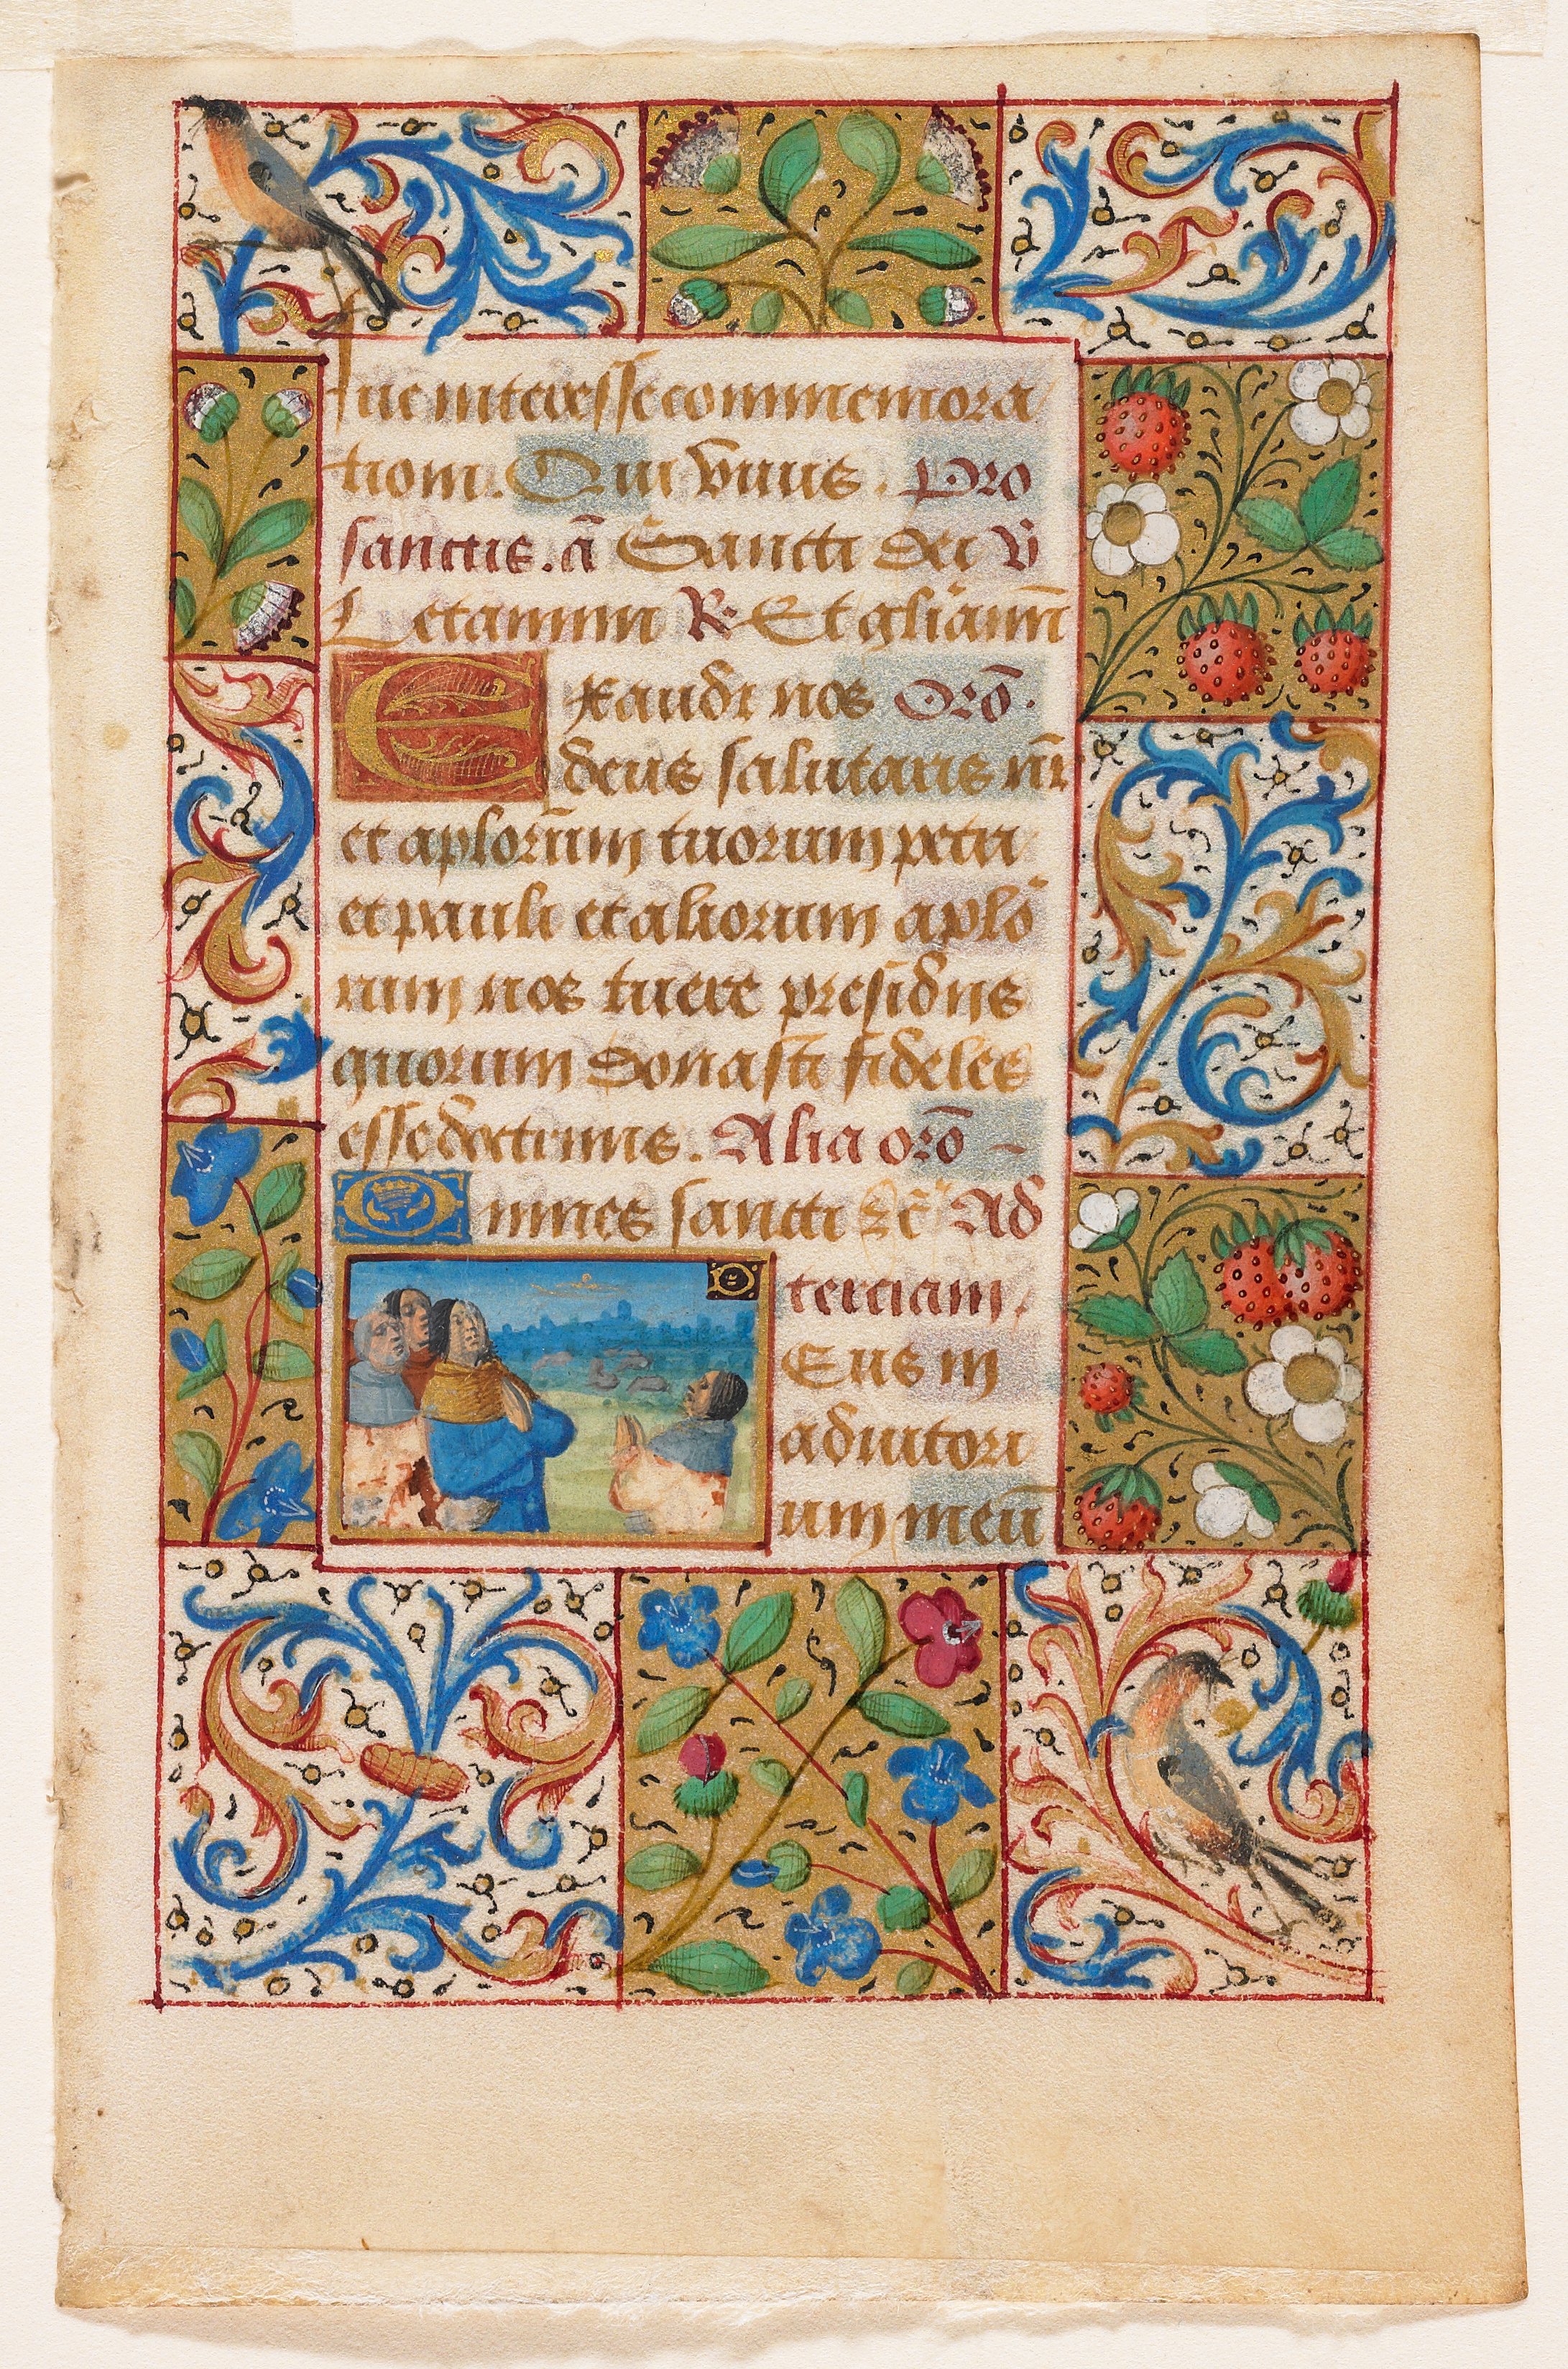 sue interesse commemora
tiom. Qui viuis. Pro
sanctis. ā Sancti dei V̄
Letamini R. Et gl̄iamī
Exaudi nos Orō.
deus salutaris nr̄
et aplorūm tuorum petri
et pauli et aliorum aplō
rum nos tuere presidiis
quorum donasti fideles
esse doctrinis. Alia orō
Omnes sancti ⁊c̄ Ad
terciam.
D
Eus in
adiutori
um meū